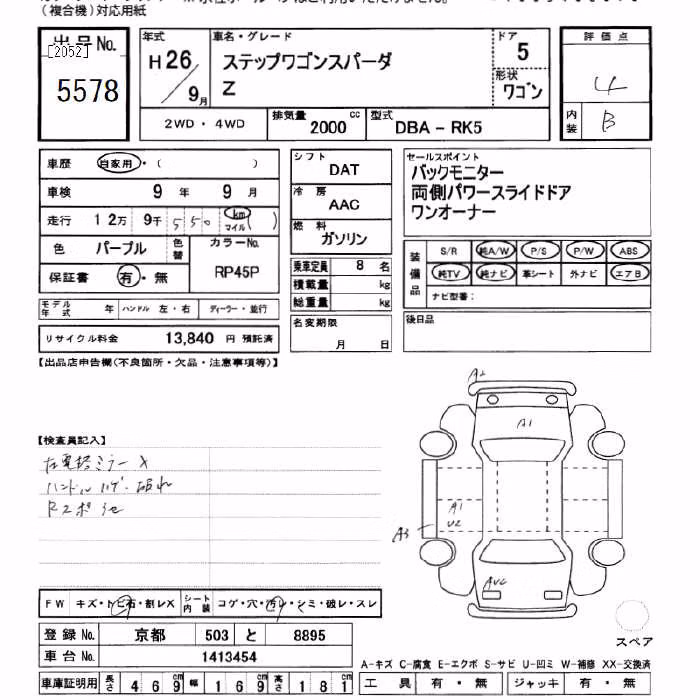 (複合機)対応用紙
出品No.
[2052]
5578
年式
H26/9月
車名・グレード
ステップワゴンスパーダ
Z
ドア
5
形状
ワゴン
評価点
4
内装
B
2WD・4WD
排気量 2000 cc
型式 DBA-RK5
車歴 自家用・( )
車検 9年 9月
走行 12万 9千 550 km マイル ( )
色 パープル 色替 カラーNo.
RP45P
保証書 有・無
モデル年式 年 ハンドル 左・右 ディーラー・並行
リサイクル料金 13,840 円 預託済
シフト
DAT
冷房
AAC
燃料
ガソリン
乗車定員 8 名
積載量 kg
総重量 kg
名変期限
月 日
セールスポイント
バックモニター
両側パワースライドドア
ワンオーナー
装備品
S/R 純A/W P/S P/W ABS
純TV 純ナビ 革シート 外ナビ エアB
ナビ型番:
後日品
【出品店申告欄(不良箇所・欠品・注意事項等)】
【検査員記入】
ハンドル
A2
A1
A1
U2
A3
FW キズ・トビ石・割レX シート内装 コゲ・穴・汚レ・シミ・破レ・スレ
登録No. 京都 503 と 8895
車台No. 1413454
車庫証明用 長さ 469 幅 169 高さ 181
スペア
A-キズ C-腐食 E-エクボ S-サビ U-凹ミ W-補修 XX-交換済
工具 有・無 ジャッキ 有・無